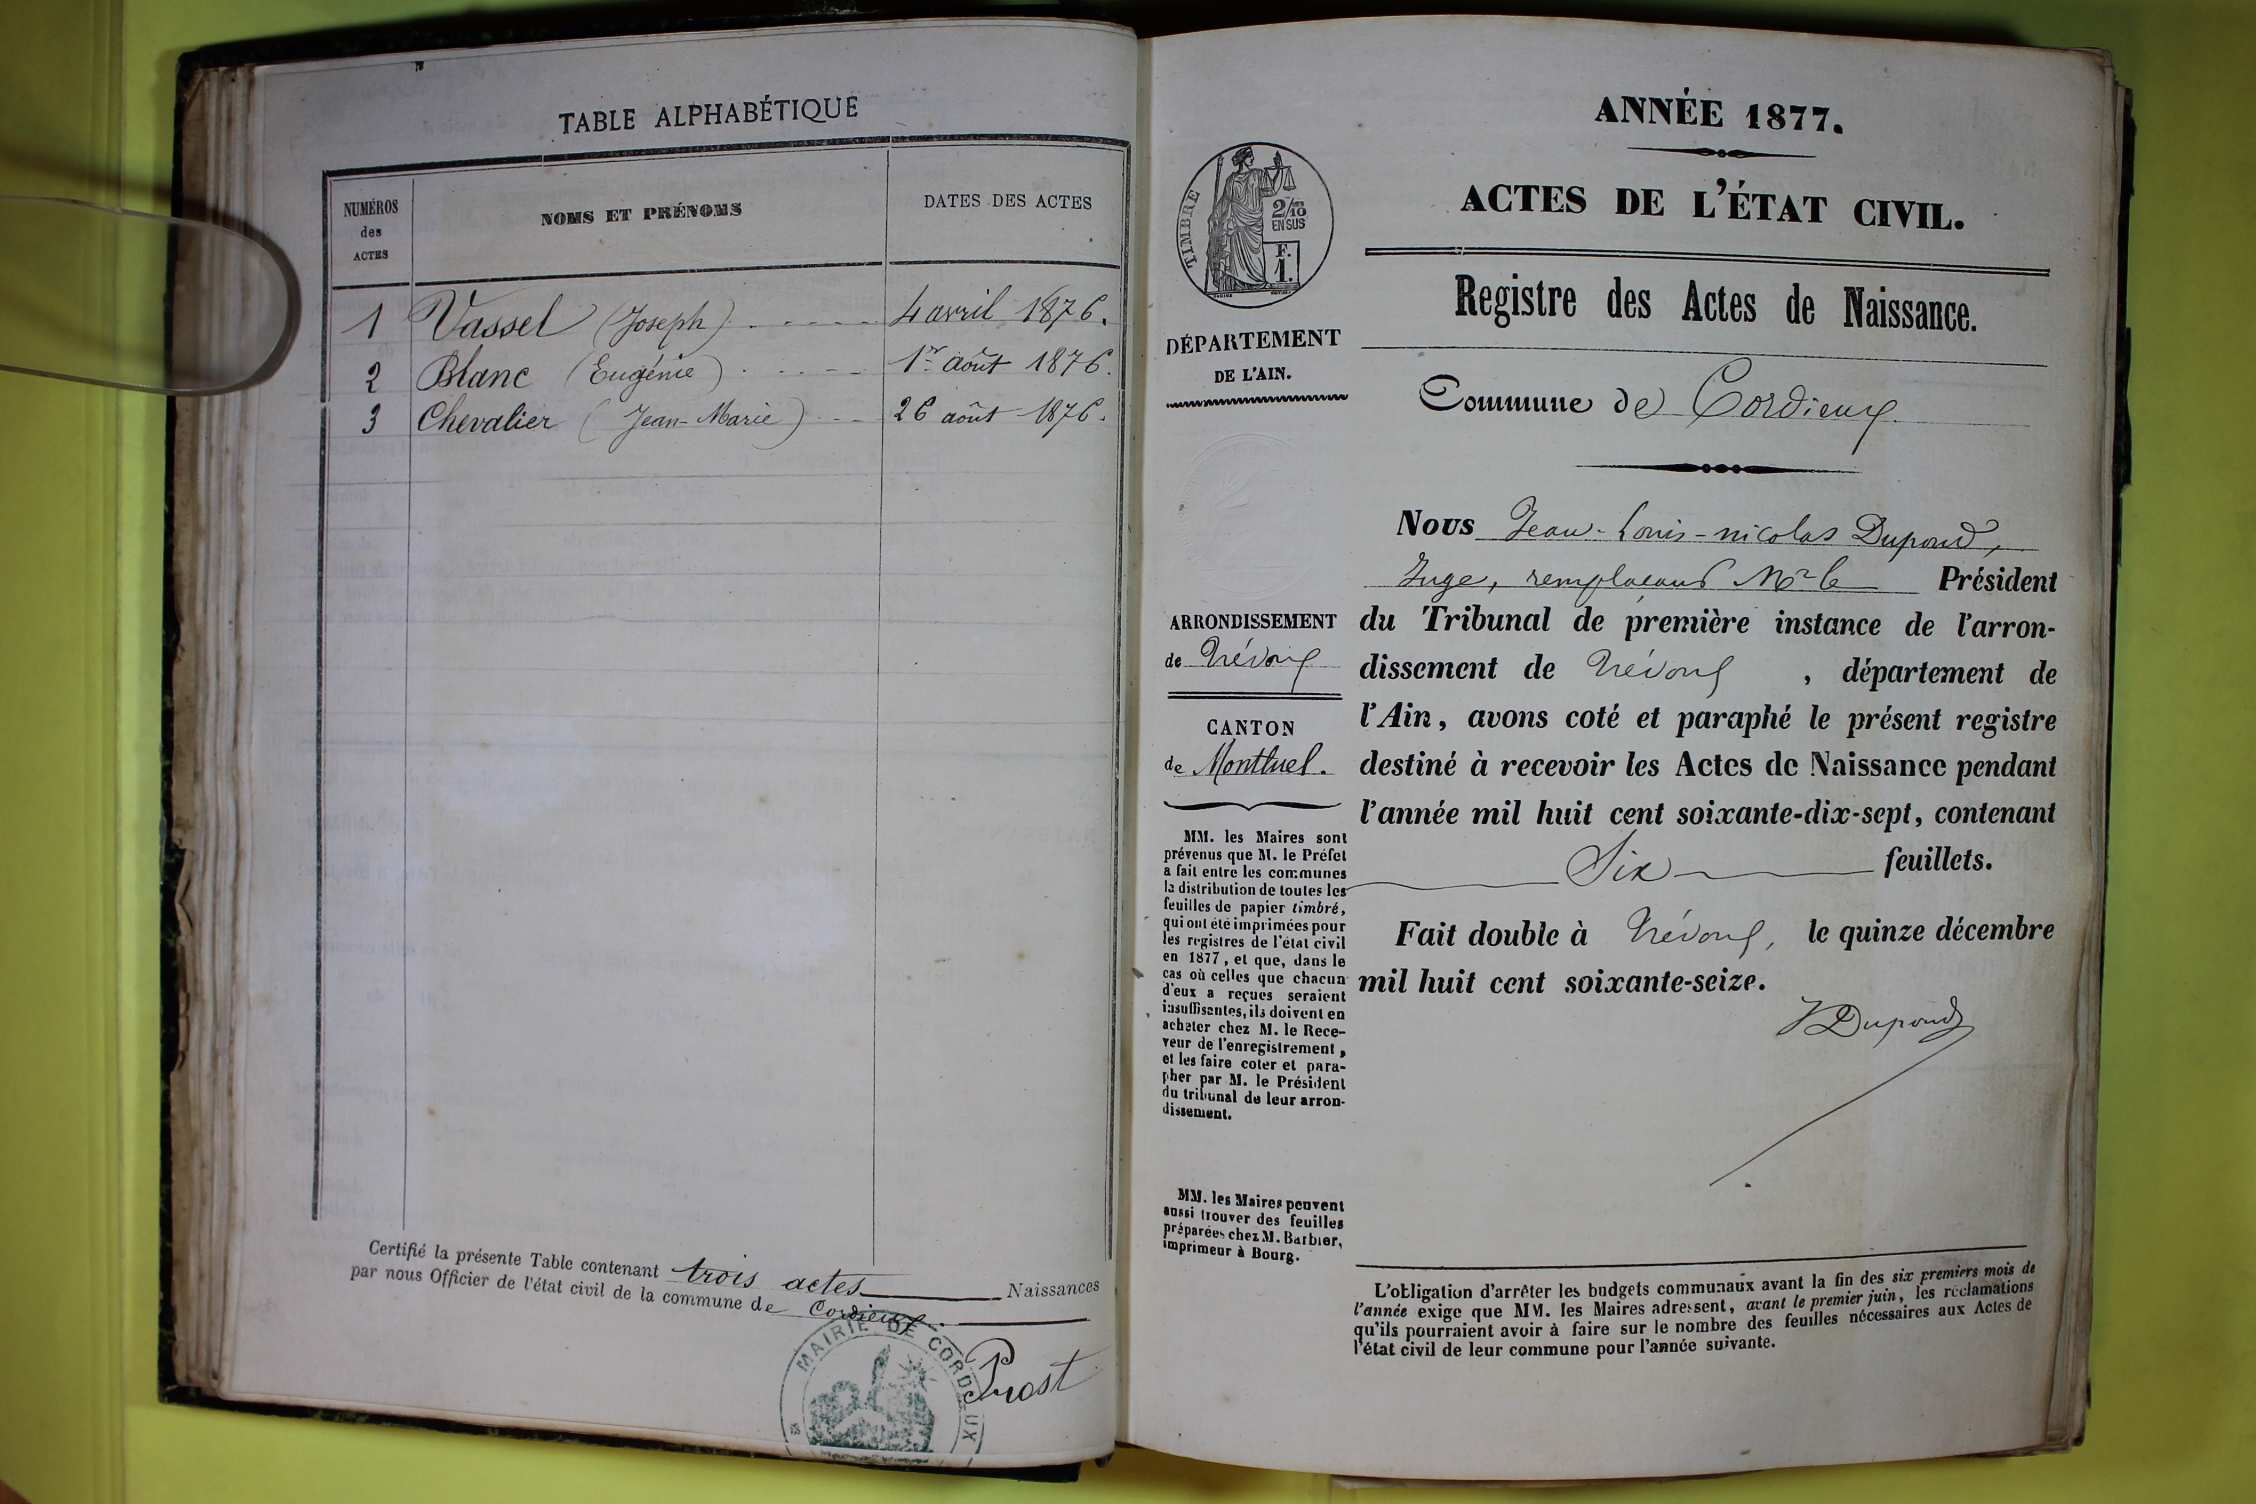 TABLE ALPHABÉTIQUE
NUMÉROS
des
ACTES
NOMS ET PRÉNOMS
DATES DES ACTES
1 Vassel (Joseph) 4 avril 1876.
2 Blanc (Eugénie) 1er août 1876.
3 Chevalier (Jean-Marie) 26 août 1876.
Certifié la présente Table contenant trois actes Naissances
par nous Officier de l'état civil de la commune de Cordieux.
MAIRIE DE CORDIEUX
Prost
TIMBRE
2/10
EN SUS
F.
1.
DÉPARTEMENT
DE L'AIN.
ARRONDISSEMENT
de Trévoux
CANTON
de Montluel.
MM. les Maires sont
prévenus que M. le Préfet
a fait entre les communes
la distribution de toutes les
feuilles de papier timbré,
qui ont été imprimées pour
les registres de l'état civil
en 1877, et que, dans le
cas où celles que chacun
d'eux a reçues seraient
insuffisantes, ils doivent en
acheter chez M. le Rece-
veur de l'enregistrement,
et les faire coter et para-
pher par M. le Président
du tribunal de leur arron-
dissement.
MM. les Maires peuvent
aussi trouver des feuilles
préparées chez M. Barbier,
imprimeur à Bourg.
ANNÉE 1877.
ACTES DE L'ÉTAT CIVIL.
Registre des Actes de Naissance.
Commune de Cordieux
Nous Jean-Louis-nicolas Dupond,
Juge, remplaçant Mr le Président
du Tribunal de première instance de l'arron-
dissement de Trévoux, département de
l'Ain, avons coté et paraphé le présent registre
destiné à recevoir les Actes de Naissance pendant
l'année mil huit cent soixante-dix-sept, contenant
Six feuillets.
Fait double à Trévoux, le quinze décembre
mil huit cent soixante-seize.
Dupond
L'obligation d'arrêter les budgets communaux avant la fin des six premiers mois de
l'année exige que MM. les Maires adressent, avant le premier juin, les réclamations
qu'ils pourraient avoir à faire sur le nombre des feuilles nécessaires aux Actes de
l'état civil de leur commune pour l'année suivante.